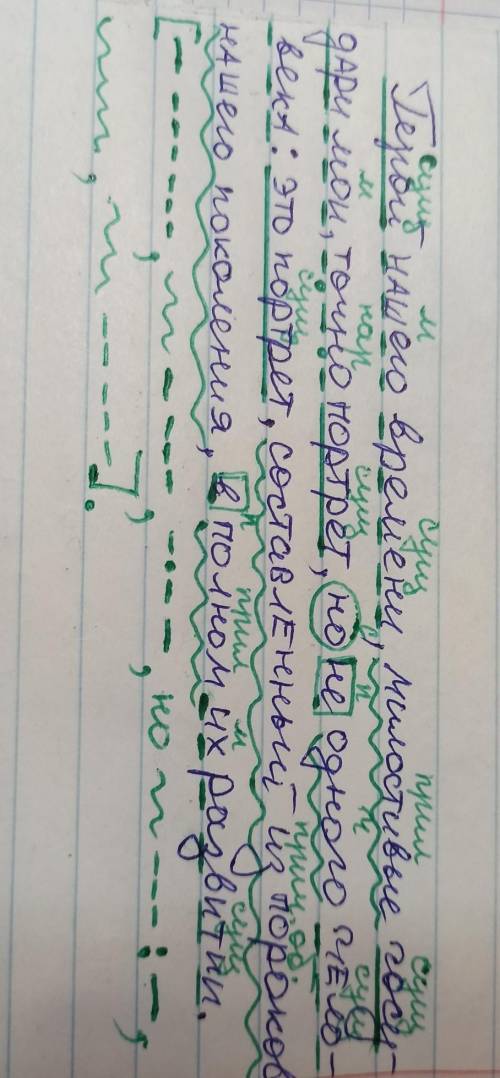 сущ м сущ прил сущ
Герой нашего времени, милостивые госу-
м нар сущ с п ч сущ
дари мои, точно портрет, но не одного чело-
сущ прич. об
века: это портрет, составленный из пороков
п прил м сущ
нашего поколения, в полном их развитии.
но